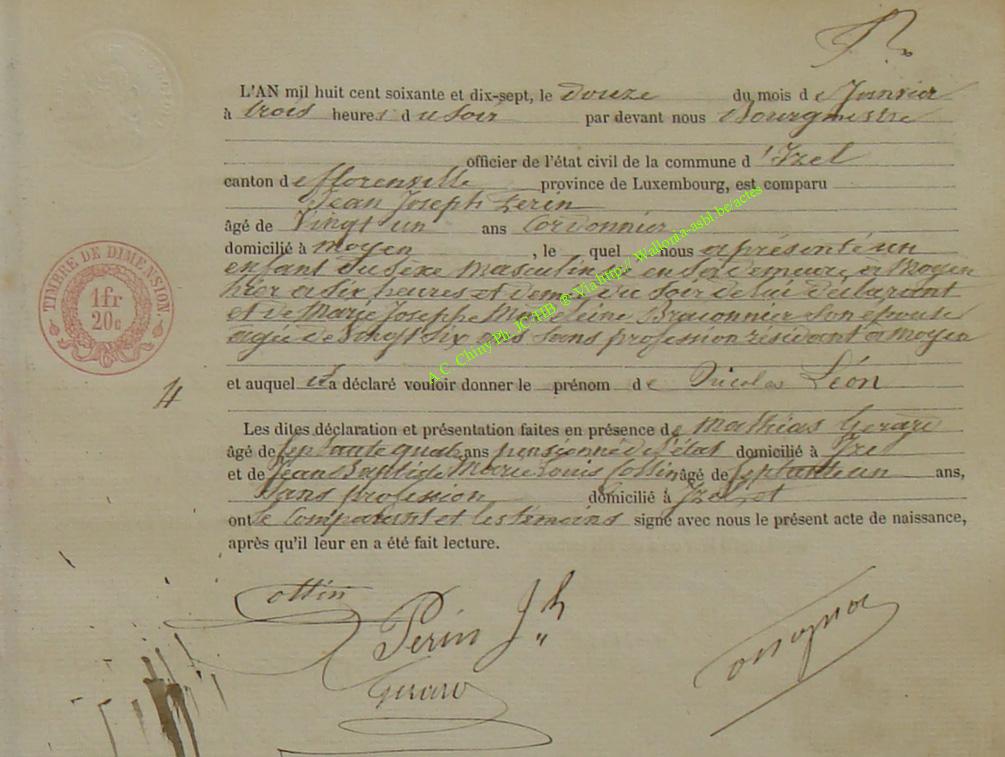 L'AN mil huit cent soixante et dix-sept, le douze du mois de Janvier
à trois heures du soir par devant nous Bourgmestre
officier de l'état civil de la commune d'Izel
canton de florenville province de Luxembourg, est comparu
Jean Joseph Perin
âgé de Vingt un ans Cordonnier
domicilié à moyen, le quel nous a présenté un
enfant du sexe Masculin né en sa demeure, à Moyen
hier à dix heures et demie du soir de lui déclarant
et de Marie Josephe Madeleine Braconnier son épouse
agée de Vingt Six ans sans profession résidant à moyen
et auquel il a déclaré vouloir donner le prénom de Nicolas Léon
4
Les dites déclaration et présentation faites en présence de Mathias Gerard
âgé de Septante quatre ans pensionné de l'état domicilié à Izel
et de Jean Baptiste Marie Louis Collin âgé de septante un ans,
Sans profession domicilié à Izel et
ont le Comparant et les témoins signé avec nous le présent acte de naissance,
après qu'il leur en a été fait lecture.
Perin Jh
Gerard
TIMBRE DE DIMENSION
1fr
20c
A.C. Chiny Ph. JC-HB @ Via http:// Wallonia-asbl.be/actes